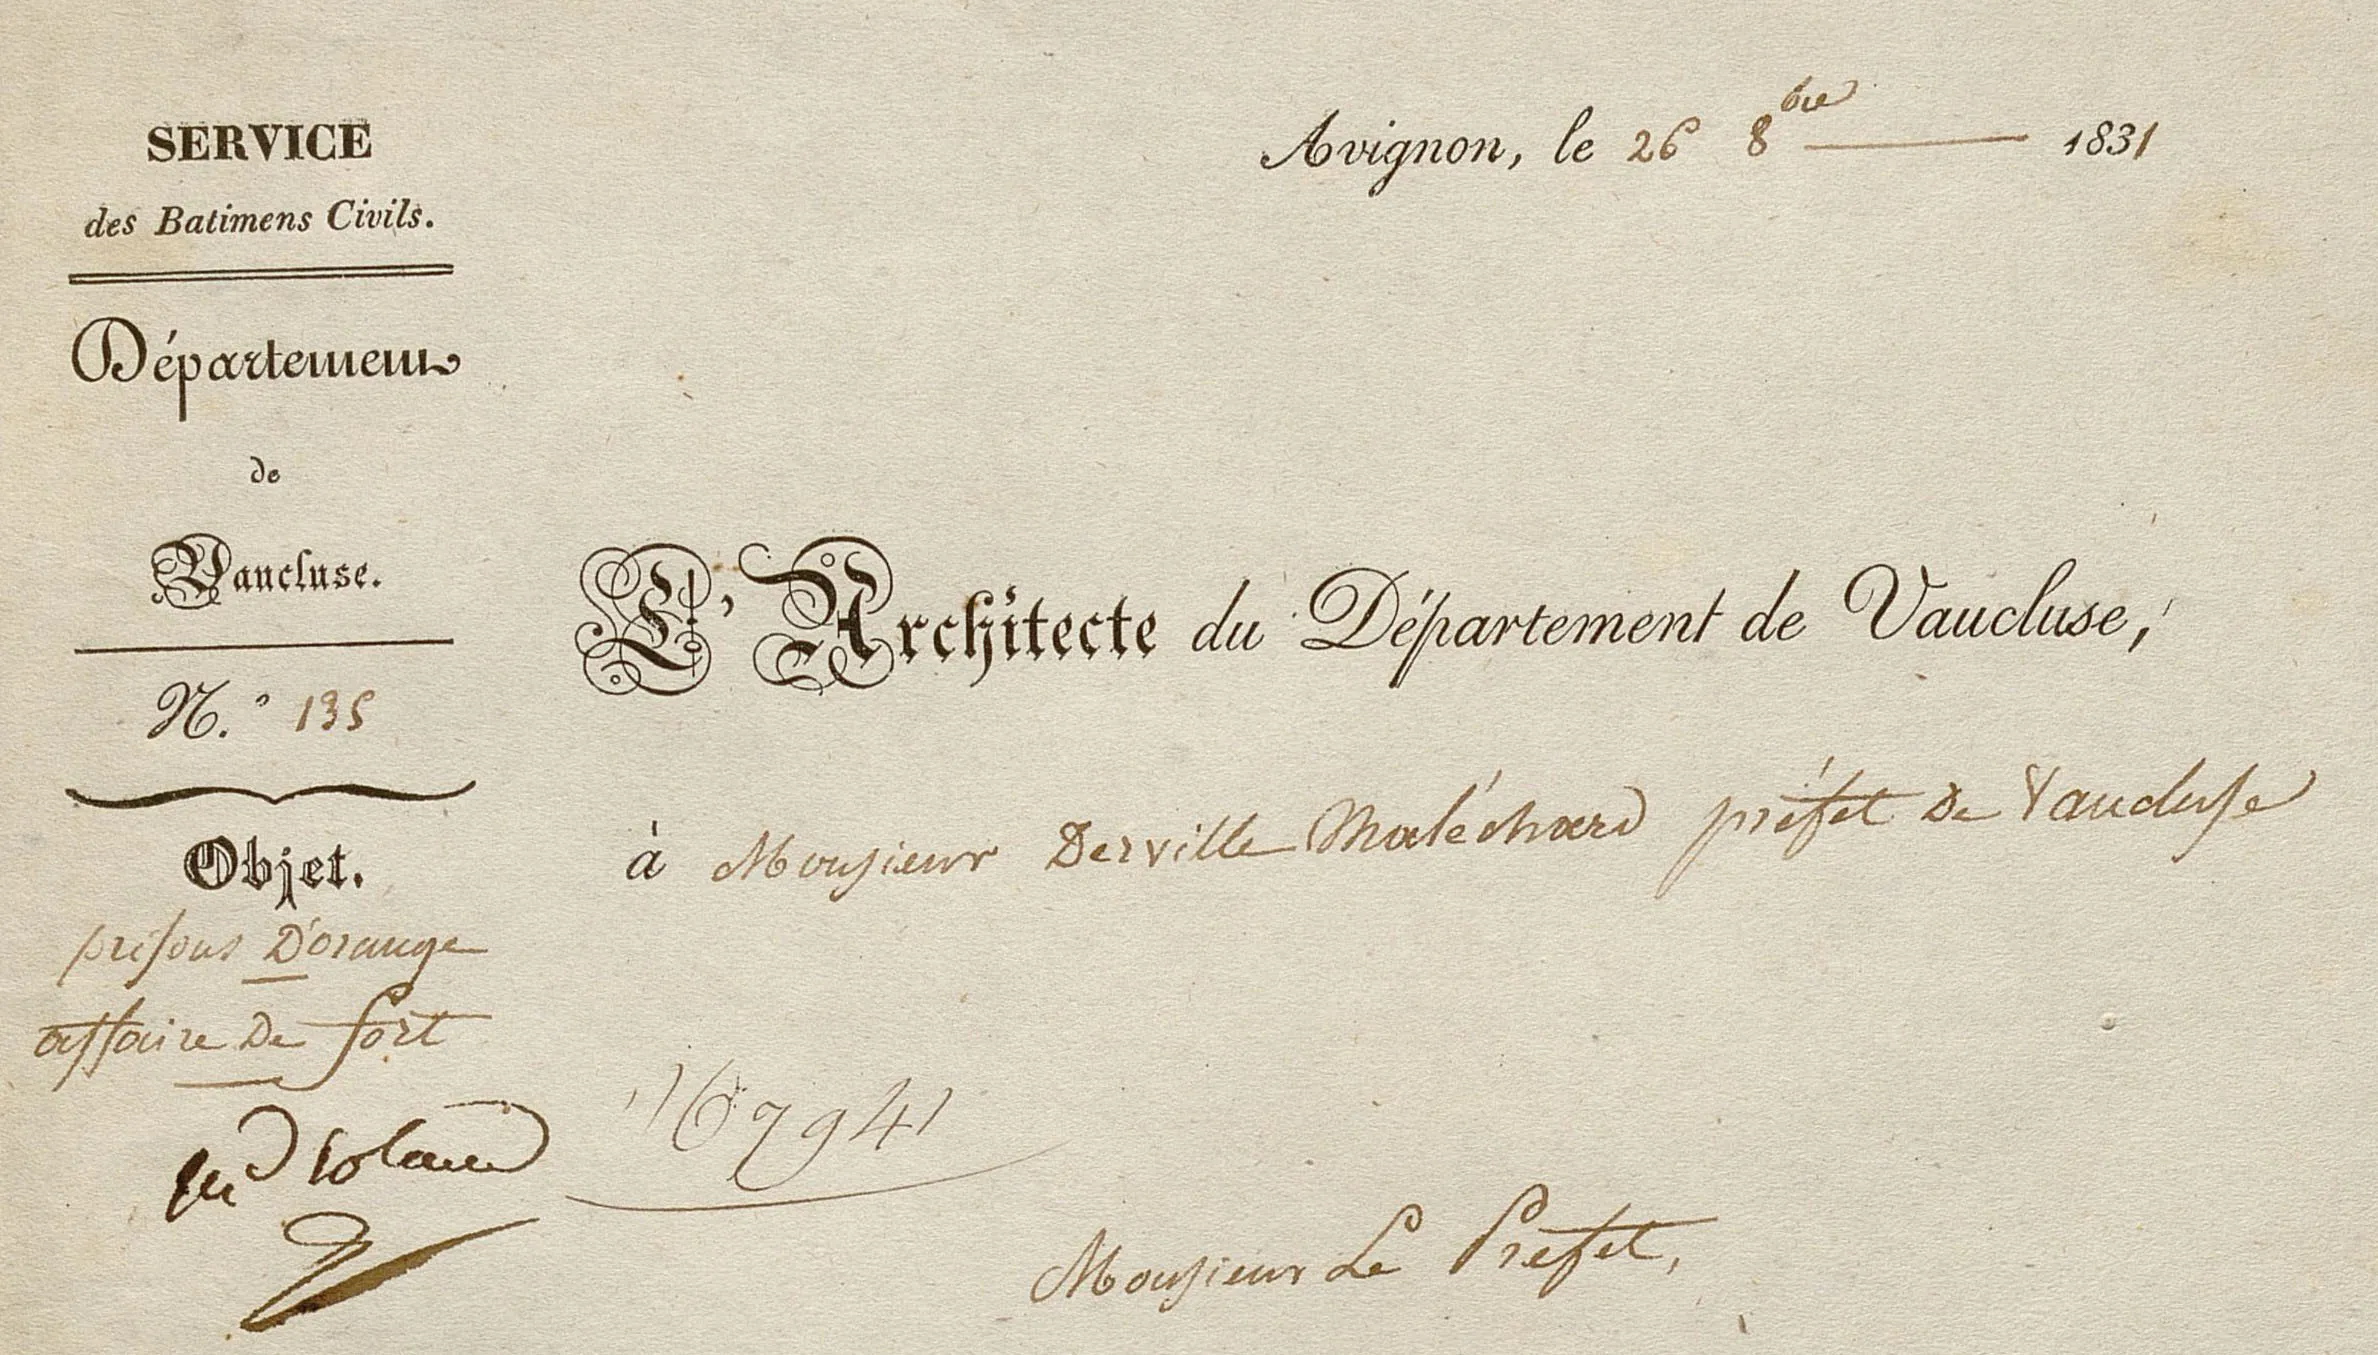 SERVICE
des Batimens Civils.
Département
de
Vaucluse.
N.° 135
Objet.
prisons D'orange
affaire De fort
Avignon, le 26 8bre 1831
L'Architecte du Département de Vaucluse,
à Monsieur Derville Maléchard préfet De Vaucluse
16794
Monsieur Le Préfet,